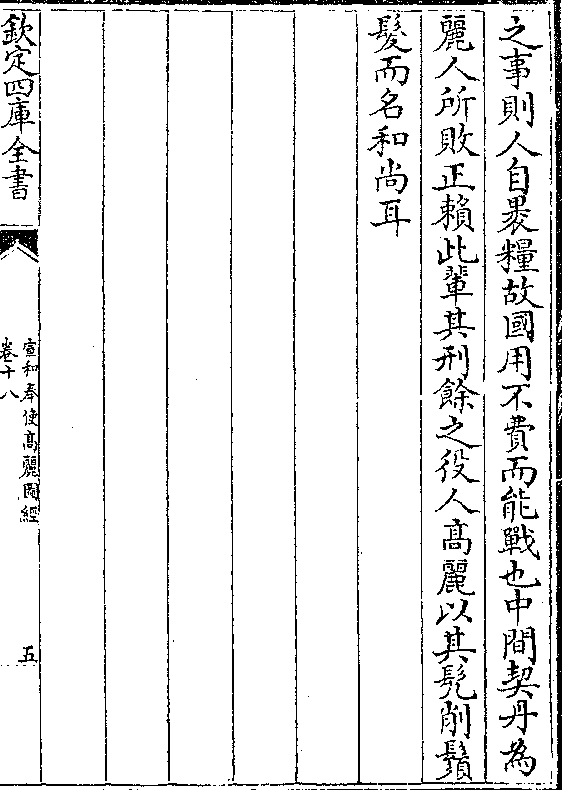 之事則人自褁糧故國用不費而能戰也中間契丹為
麗人所敗正賴此輩其刑餘之役人髙麗以其髡削鬚
髮而名和尚耳
欽定四庫全書
宣和奉使髙麗圖經
卷十八
五